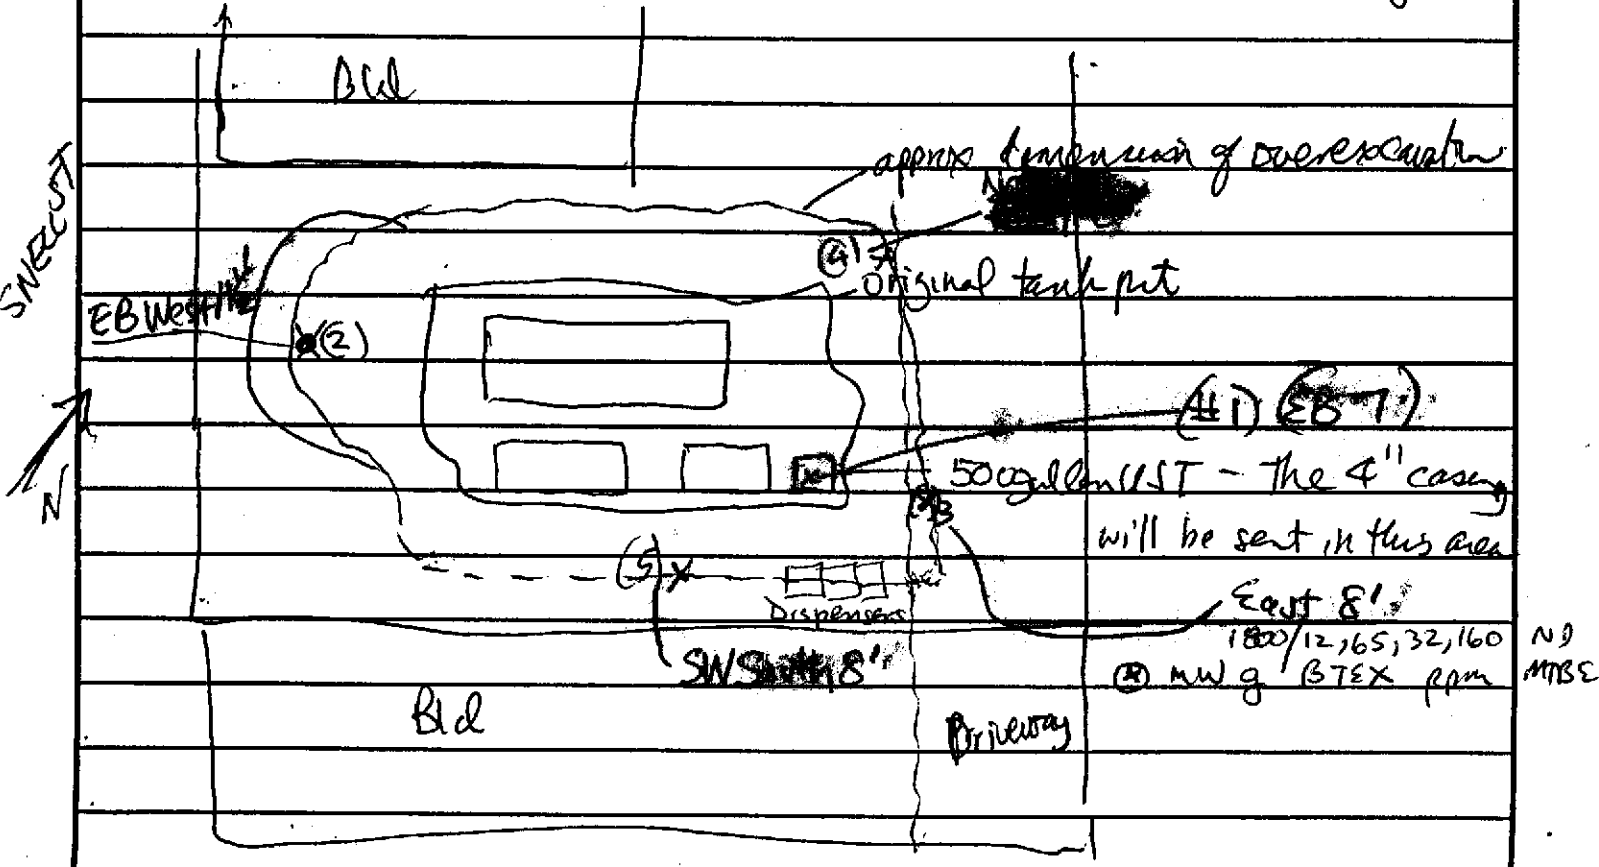 Bld
approx dimension of overexcavation
(4)
Original tank pit
EB West
(2)
(#1) (EB 7)
500 gallon UST - The 4" casing
will be sent in this area
N
(5) X
Dispensers
East 8'
1800/12,65,32,160 ND
SW South 8'
MW g BTEX ppm MTBE
Bld
Driveway